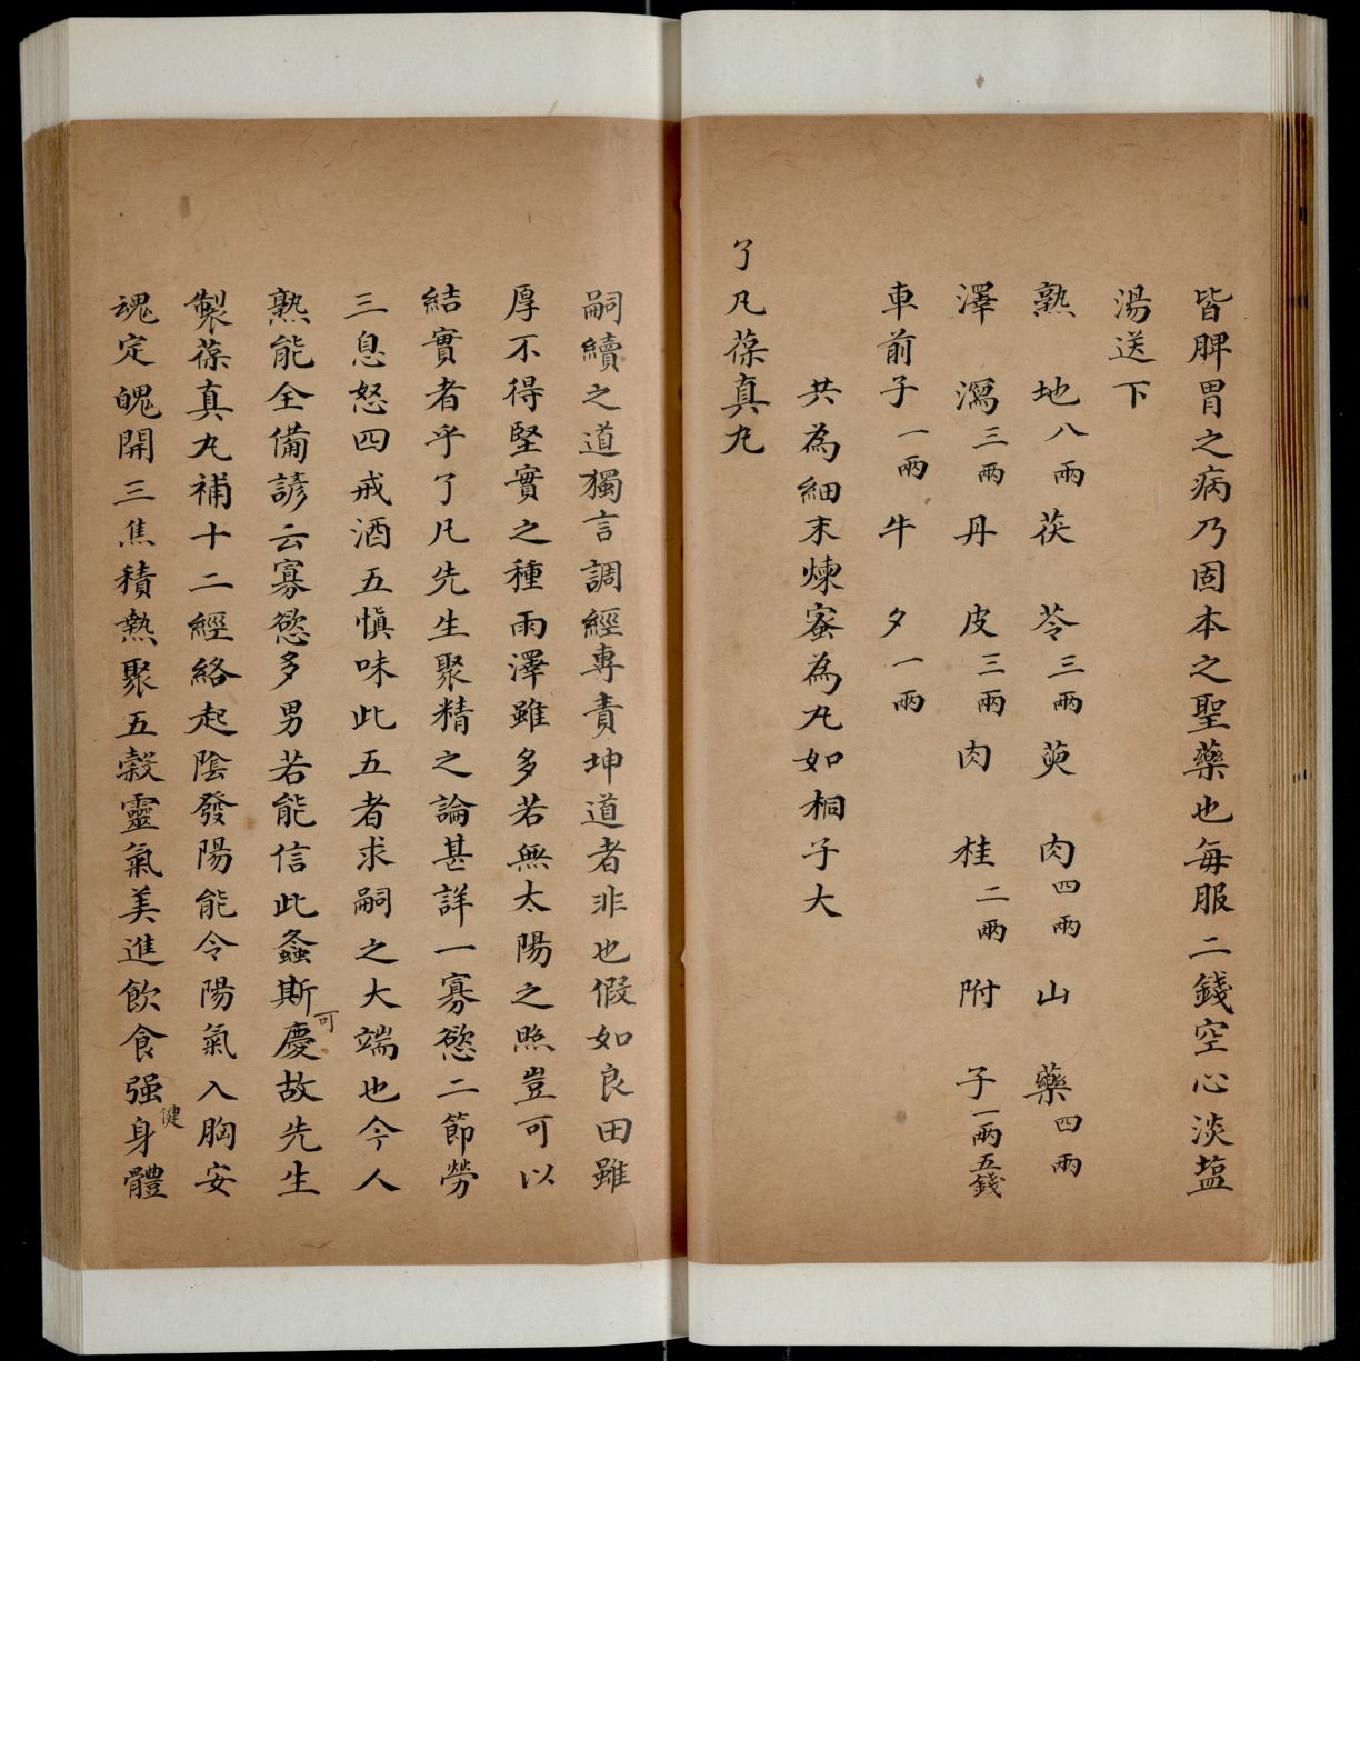 皆脾胃之病乃固本之聖藥也每服二錢空心淡塩
湯送下
熟地八兩茯苓三兩萸肉四兩山藥四兩
澤瀉三兩丹皮三兩肉桂二兩附子一兩五錢
車前子一兩牛夕一兩
共為細末煉蜜為丸如桐子大
了凡葆真丸
嗣續之道獨言調經專責坤道者非也假如良田雖
厚不得堅實之種雨澤雖多若無太陽之照豈可以
結實者乎了凡先生聚精之論甚詳一寡慾二節勞
三息怒四戒酒五慎味此五者求嗣之大端也今人
熟能全備諺云寡慾多男若能信此螽斯可慶故先生
製葆真丸補十二經絡起陰發陽能令陽氣入胸安
魂定魄開三焦積熱聚五穀靈氣美進飲食强健身體